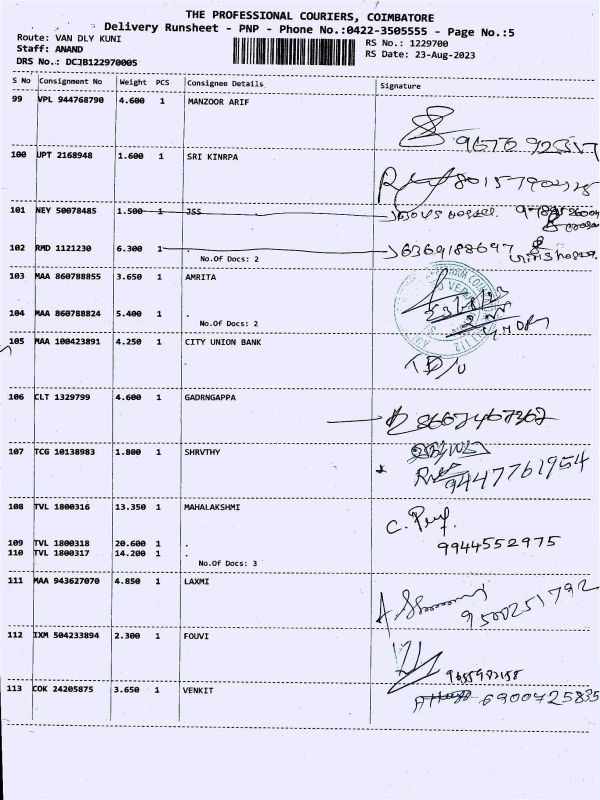 THE PROFESSIONAL COURIERS, COIMBATORE
Delivery Runsheet - PNP - Phone No.:0422-3505555 - Page No.:5
Route: VAN DLY KUNI
RS No.: 1229700
Staff: ANAND
RS Date: 23-Aug-2023
DRS No.: DCJB122970005
S No Consignment No Weight PCS Consignee Details Signature
99 VPL 944768790 4.600 1 MANZOOR ARIF
100 UPT 2168948 1.600 1 SRI KINRPA
101 NEY 50078485 1.500 1 JSS
102 RMD 1121230 6.300 1 . 6369188697
No.Of Docs: 2
103 MAA 860788855 3.650 1 AMRITA
104 MAA 860788824 5.400 1 .
No.Of Docs: 2
105 MAA 100423891 4.250 1 CITY UNION BANK
106 CLT 1329799 4.600 1 GADRNGAPPA
8667467367
107 TCG 10138983 1.800 1 SHRVTHY
9447761954
108 TVL 1800316 13.350 1 MAHALAKSHMI
109 TVL 1800318 20.600 1 .
9944552975
110 TVL 1800317 14.200 1 .
No.Of Docs: 3
111 MAA 943627070 4.850 1 LAXMI
9500251792
112 IXM 504233894 2.300 1 FOUVI
113 COK 24205875 3.650 1 VENKIT
6900725835